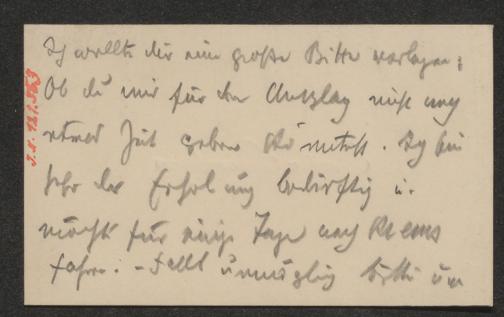 Ich wollte dir eine große Bitte vorlegen;
Ob du mir für den Umschlag nicht noch
etwas Zeit geben könntest. Ich bin
sehr der Erholung bedürftig u.
möchte für einige Tage nach Krems
fahren. – Falls unmöglich bitte um
I.N. 121.563